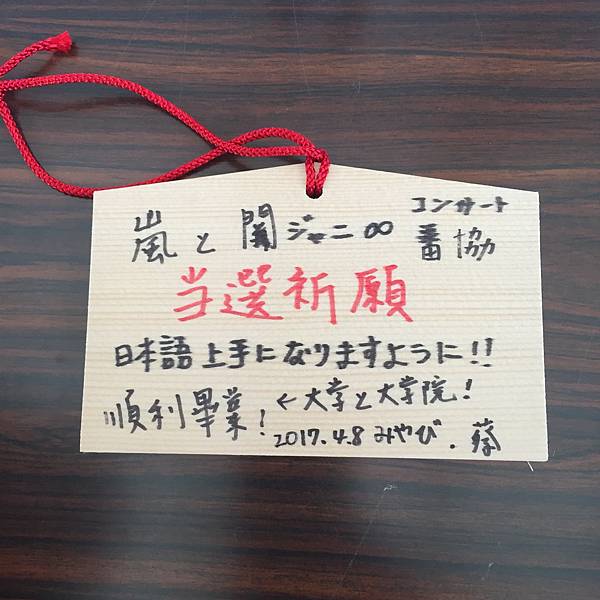 コンサート
嵐と関ジャニ∞ 番協
当選祈願
日本語上手になりますように!!
順利畢業! ←大学と大学院!
2017.4.8 みやび.蔡